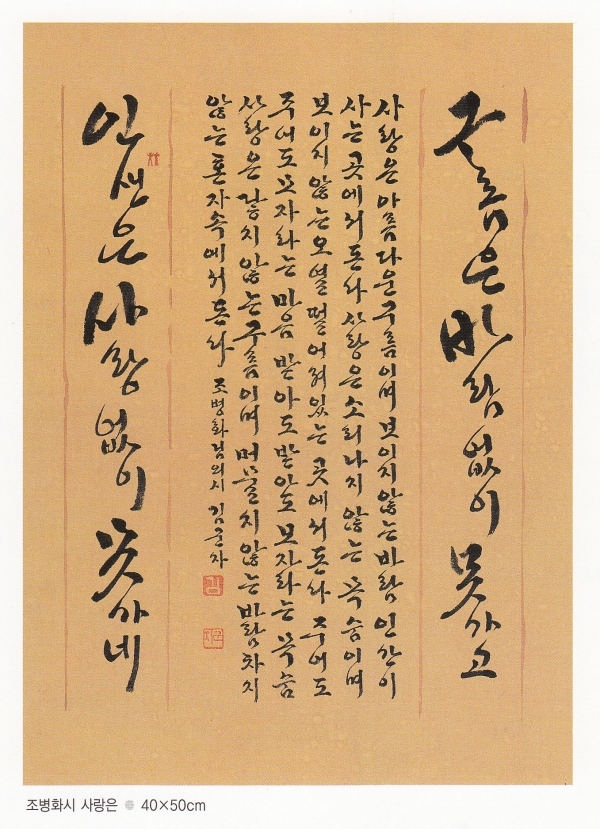 구름은 바람 없이 못가고
사랑은 아름다운 구름이며 보이지 않는 바람 인간이
사는 곳에서 돈다 사랑은 소리나지 않는 목숨이며
보이지 않는 오열 떨어져있는 곳에서 돈다 주어도
주어도 모자라는 마음 받아도 받아도 모자라는 목숨
사랑은 닿지 않는 구름이며 머물지 않는 바람 차지
않는 혼자 속에서 돈다 조병화님의 시 김군자
인생은 사랑 없이 못가네
조병화시 사랑은 40×50cm